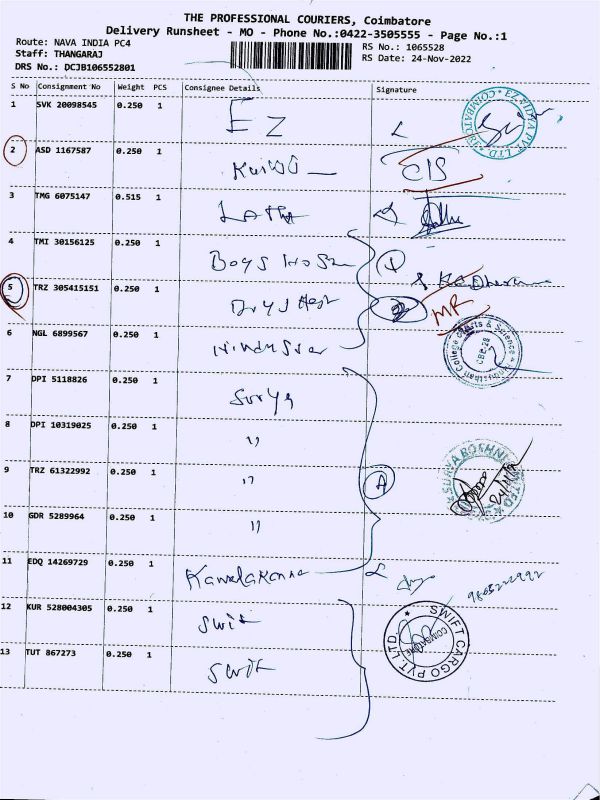 THE PROFESSIONAL COURIERS, Coimbatore
Delivery Runsheet - MO - Phone No.:0422-3505555 - Page No.:1
Route: NAVA INDIA PC4
Staff: THANGARAJ
DRS No.: DCJB106552801
RS No.: 1065528
RS Date: 24-Nov-2022
S No Consignment No Weight PCS Consignee Details Signature
1 SVK 20098545 0.250 1 EZ
2 ASD 1167587 0.250 1 CIS
3 TMG 6075147 0.515 1 Latha
4 TMI 30156125 0.250 1 Boys Hosr 1
5 TRZ 305415151 0.250 1 2 MR
6 NGL 6899567 0.250 1
7 DPI 5118826 0.250 1 Surya
8 DPI 10319025 0.250 1 "
9 TRZ 61322992 0.250 1 " A
10 GDR 5289964 0.250 1 "
11 EDQ 14269729 0.250 1
12 KUR 528004305 0.250 1 Swit
13 TUT 867273 0.250 1 Swit
College of Arts & Science
CBE-28
SWIFT CARGO PVT. LTD.
COIMBATORE